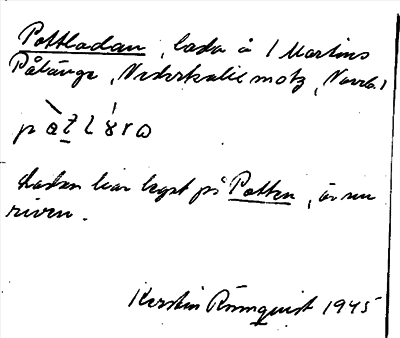 Pottladan, lada å 1 Martins
Påläng, Nederkalix motz, Norrb.l
Ladan har legat på Potten, är nu
riven.
Kerstin Rönnquist 1945